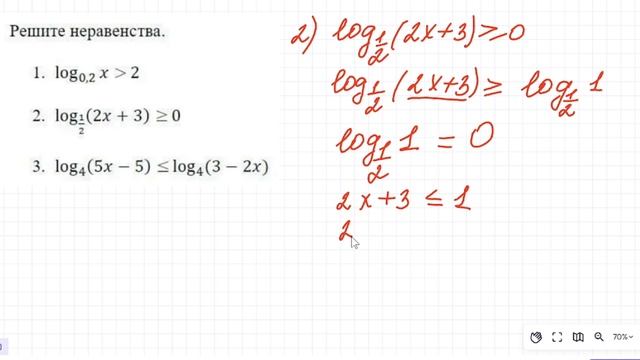 Решите неравенства.
1. log₀,₂ x > 2
2. log_{1/2}(2x + 3) ≥ 0
3. log₄(5x − 5) ≤ log₄(3 − 2x)
2) log_{1/2}(2x+3) ≥ 0
log_{1/2}(2x+3) ≥ log_{1/2} 1
log_{1/2} 1 = 0
2x+3 ≤ 1
2
70%